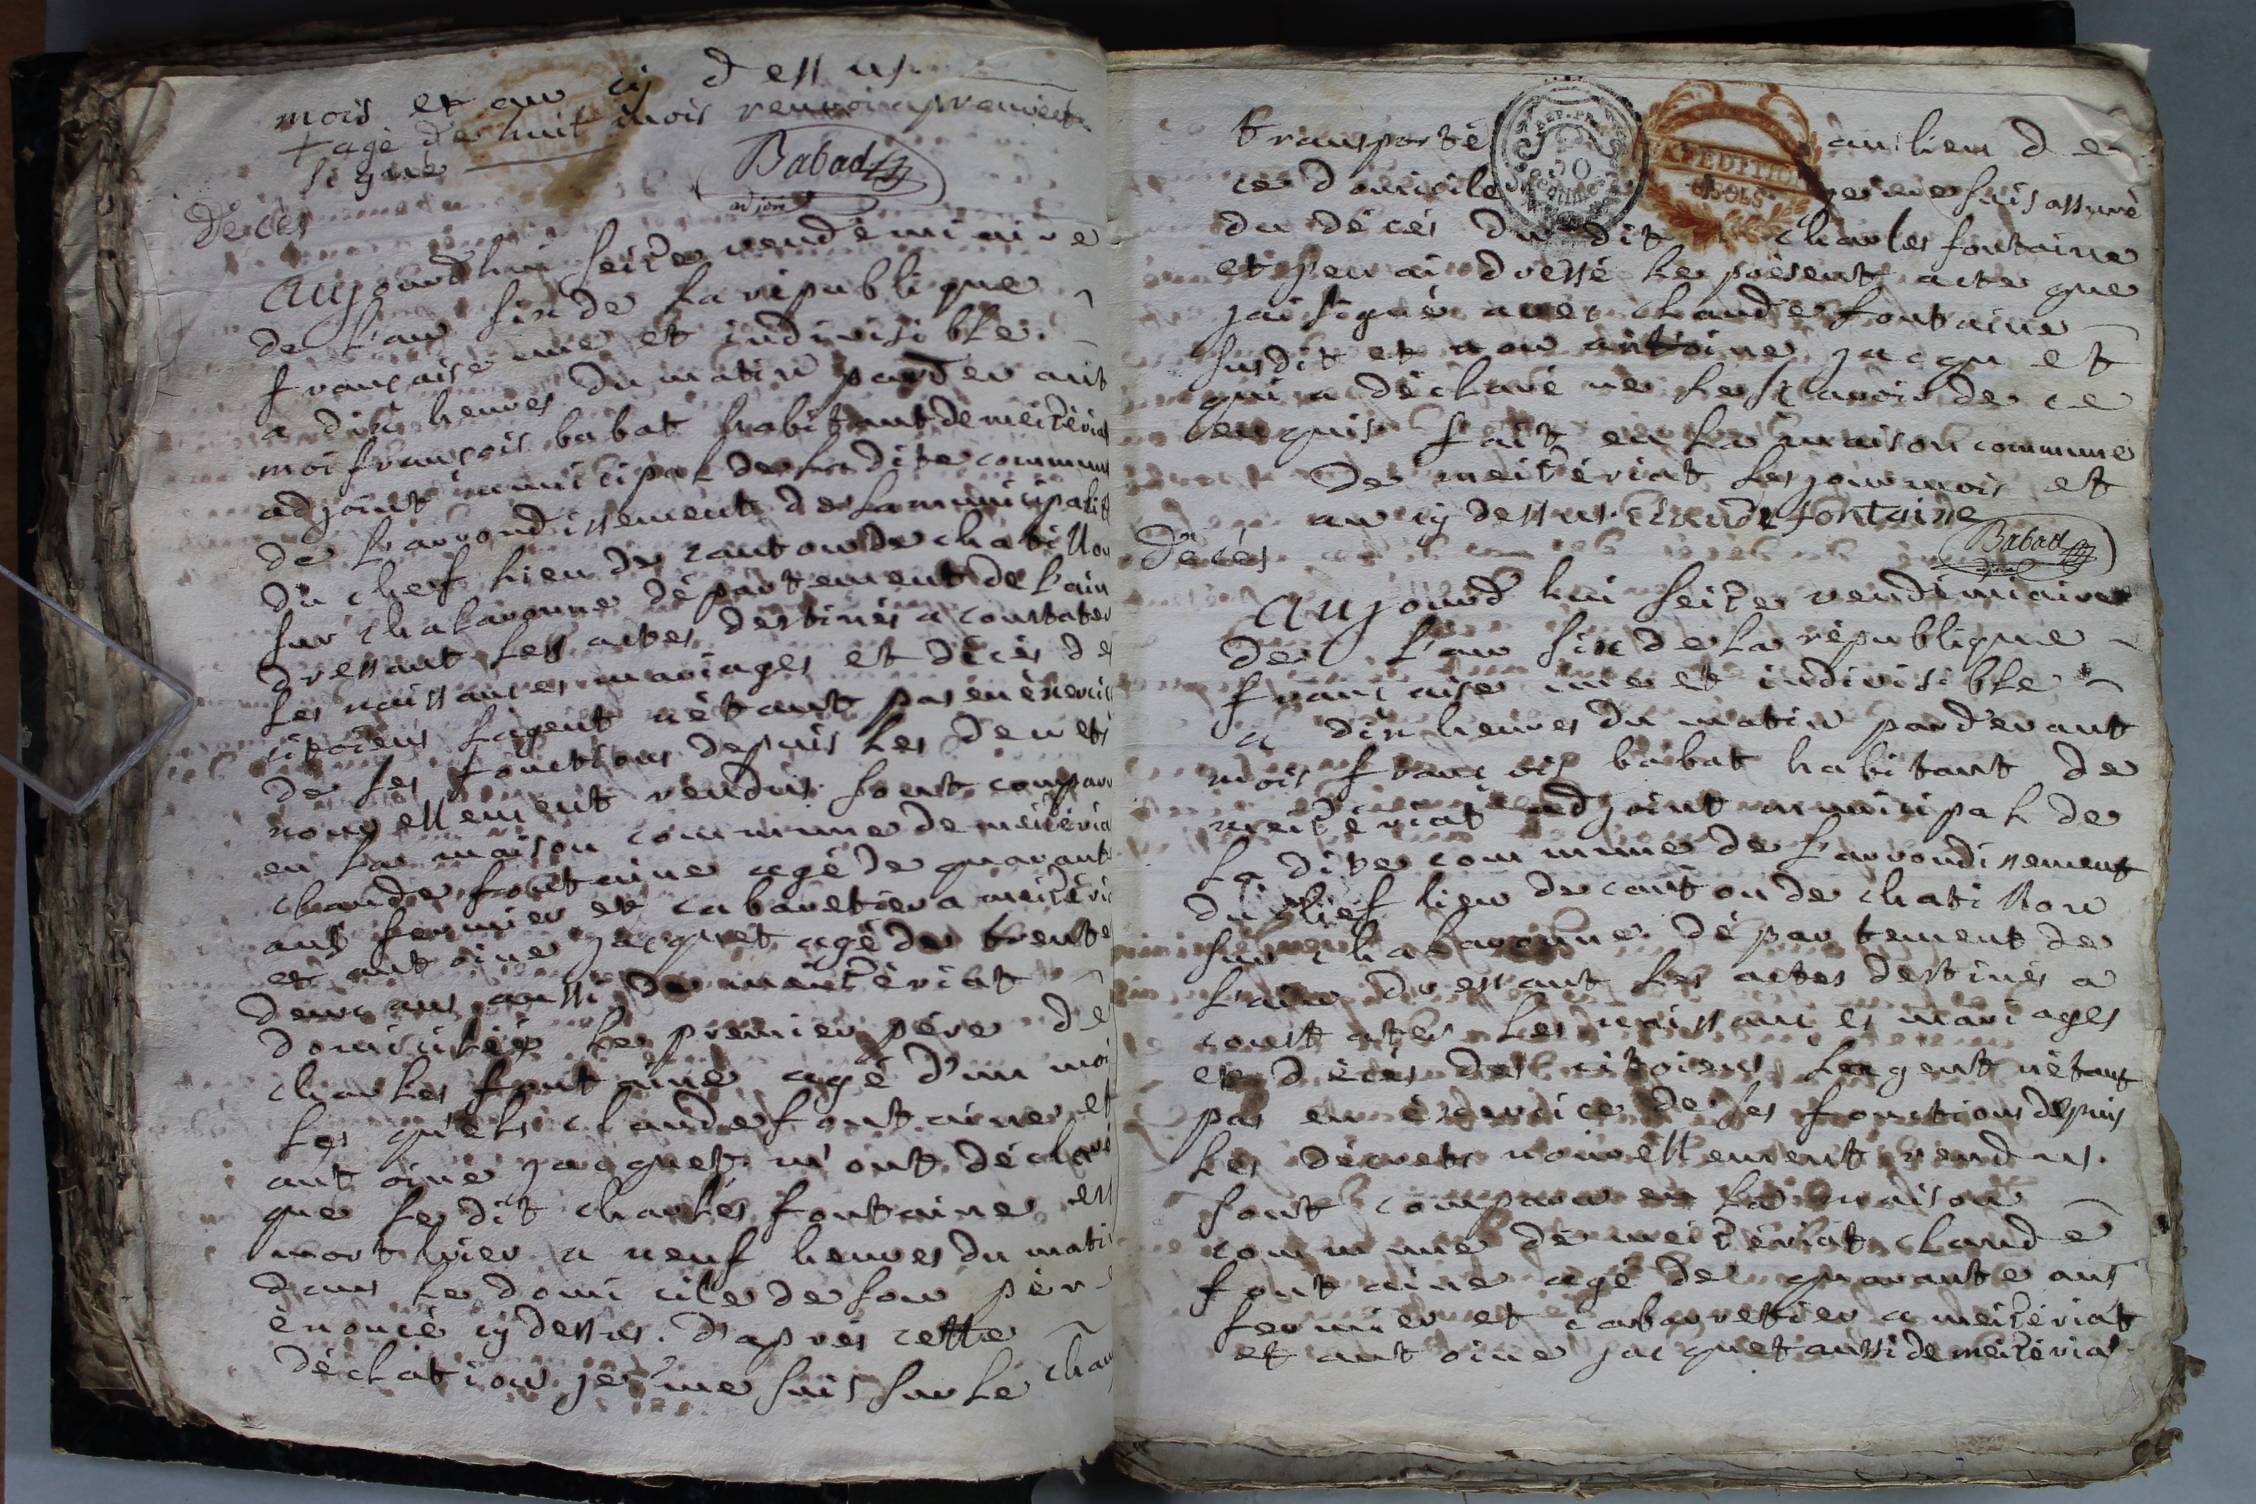 mois et an cij dessus.
+ agé de huit mois renvoi aprouvé et
signé
Babad
adjoint
décès
aujourd'hui seize vendemiaire
de l'an six de la republique
française une et indivisible.
a dix heures du matin pardevant
moi françois babat habitant de meizériat
adjoint municipal de la dite commune
de l'arrondissement de la municipalité
du chef lieu du canton de chatillon
sur chalaronne département de l'ain
dressant les actes destinés a constater
les naissances mariages et décés des
citoiens l'agent n'étant pas en éxercice
de ses fonctions depuis les decrets
nouvellement rendus. sont comparu
en la maison commune de meizériat
claude fontaine agé de quarante
ans fermier et cabaretier a meizériat
et antoine jacquet agé de trente
deux ans aussi de meizériat
domiciliés le premier pére de
charles fontaine agé d'un mois
les quels claude fontaine et
antoine jacquet m'ont déclaré
que le dit charles fontaine est
mort hier a neuf heures du matin
dans le domicile de son pére
énoncé cy dessus. d'aprés cette
déclation je me suis sur le champ
transporté au lieu de
ce domicile je me suis assuré
du décés du dit charles fontaine
et j'en ai dressé le présent acte que
j'ai signé avec claude fontaine
susdit et non antoine jacquet
qui a déclaré ne le sçavoir de ce
enquis fait en la maison commune
de meizériat les jour mois et
an cy dessus. claude fontaine
Babad
adjoint
REP. FRA.
50
centimes
EXPEDITION
SOLS
décès
aujourd'hui seize vendemiaire
de l'an six de la république
française une et indivisible
a dix heures du matin pardevant
mois françois babat habitant de
meizériat adjoint municipal de
la dite commune de l'arrondissement
du chef lieu de canton de chatillon
sur chalaronne département de
l'ain dressant les actes destinés a
constater les naissances mariages
et décés des citoiens l'agent n'étant
pas en éxercice de ses fonctions depuis
les décrets nouvellement rendus.
sont comparu en la maison
commune de meizériat claude
fontaine agé de quarante ans
fermier et cabarettier a meizériat
et antoine jacquet aussi de meizériat